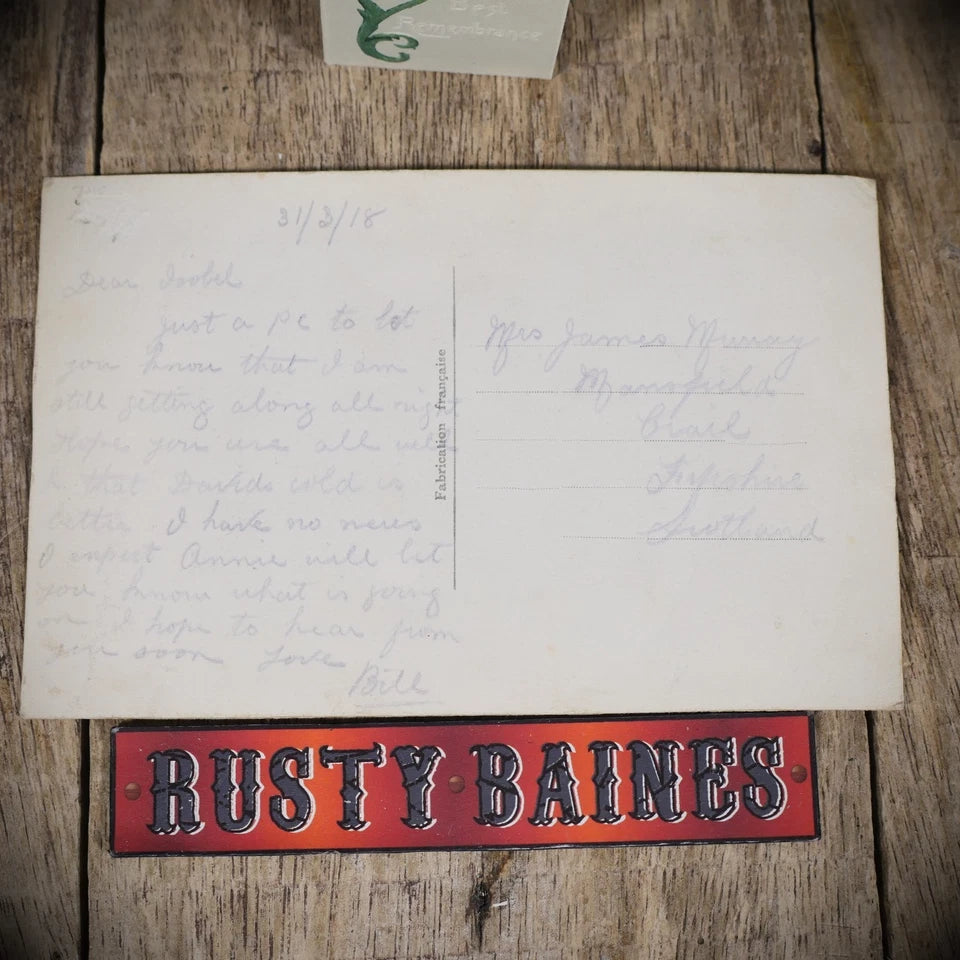 Best
Remembrance
31/3/18
Dear Isobel
Just a pc to let
you know that I am
still getting along all right
Hope you are all well
& that Davids cold is
better. I have no news
I expect Annie will let
you know what is going
on I hope to hear from
you soon Love
Bill
Fabrication française
Mrs James Murray
Mansfield
Crail
Fifeshire
Scotland
RUSTY BAINES